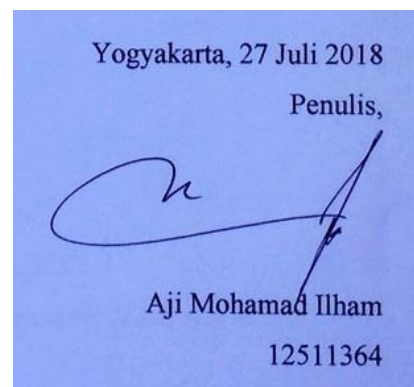 Yogyakarta, 27 Juli 2018
Penulis,
Aji Mohamad Ilham
12511364